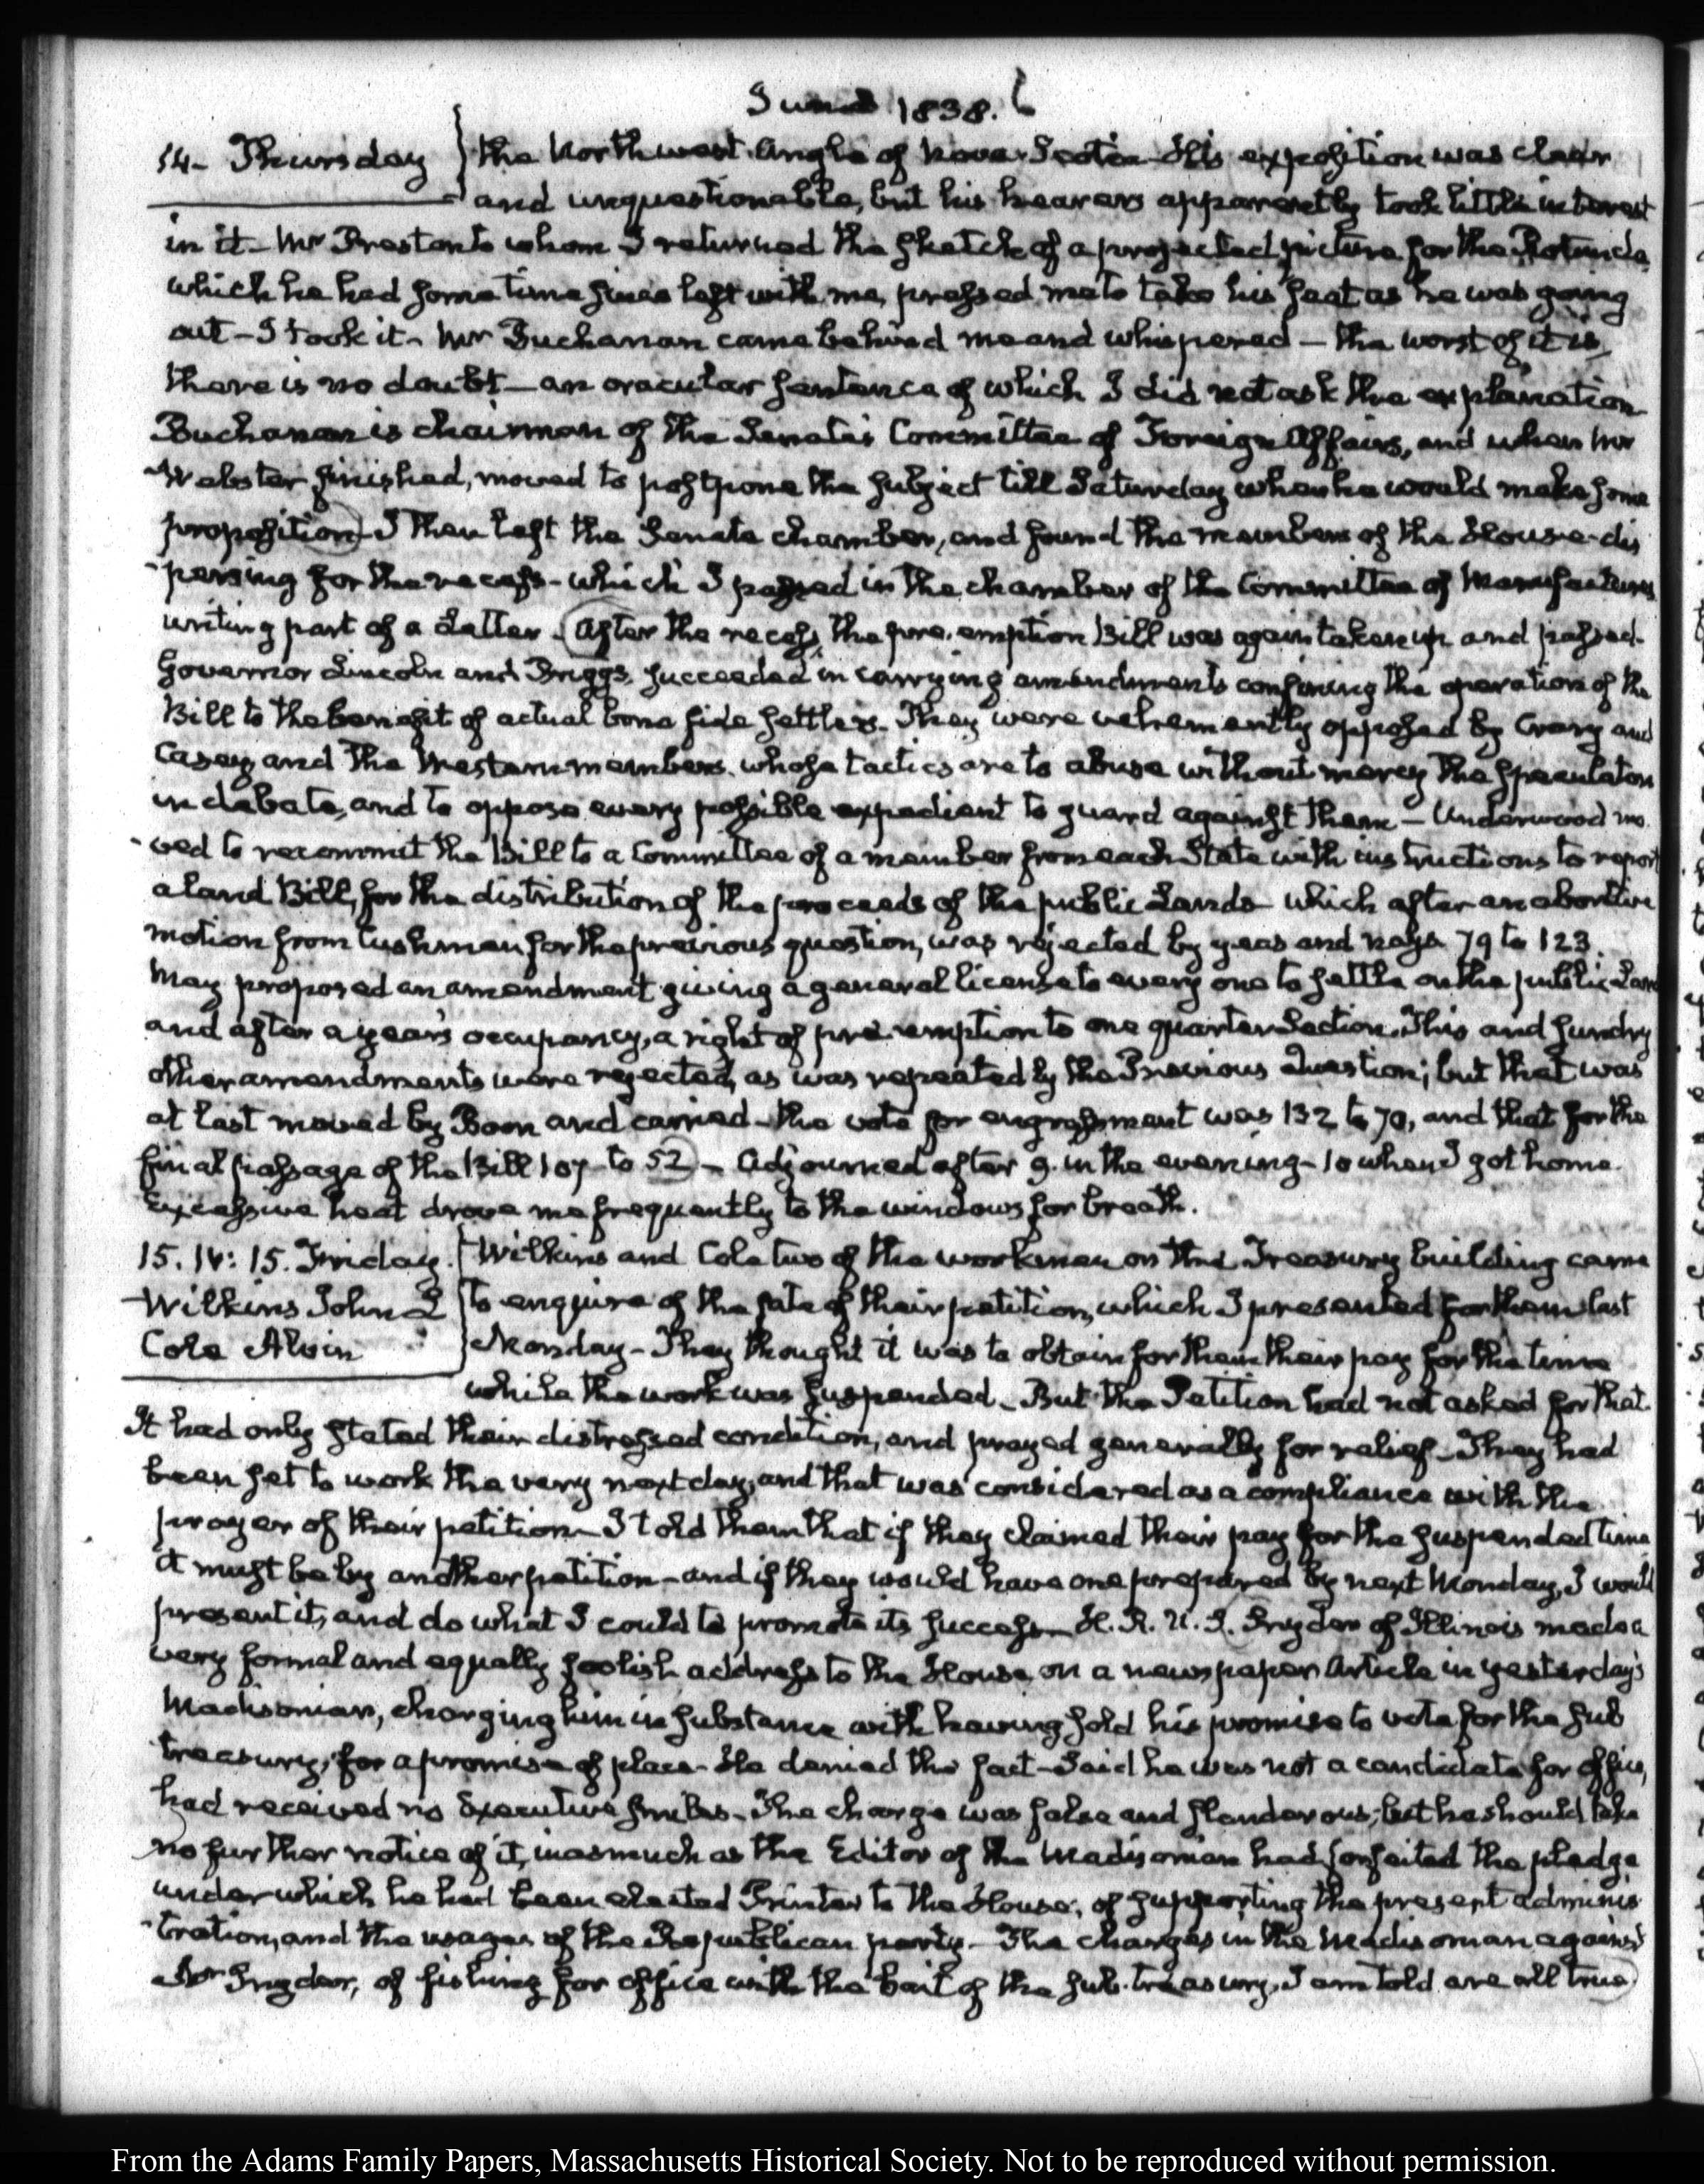 June 1838.
14- Thursday
the Northwest Angle of Nova-Scotia. His exposition was clear
and unquestionable, but his hearers apparently took little interest
in it- Mr Preston to whom I returned the sketch of a projected picture for the Rotunda,
which he had some time since left with me, pressed me to take his seat as he was going
out- I took it- Mr Buchanan came behind me and whispered- the worst of it is,
there is no doubt- an oracular sentence of which I did not ask the explanation
Buchanan is chairman of the Senate's Committee of Foreign Affairs, and when Mr
Webster finished, moved to postpone the subject till Saturday when he would make some
proposition- I then left the Senate chamber, and found the members of the House dis
-persing for the recess- which I passed in the chamber of the Committee of Manufactures
writing part of a Letter. After the recess, the pre-emption Bill was again taken up and passed-
Governor Lincoln and Briggs, succeeded in carrying amendments confining the operation of the
Bill to the benefit of actual bona fide settlers. They were vehemently opposed by Crary and
Casey and the Western members, whose tactics are to abuse without mercy the speculators
in debate, and to oppose every possible expedient to guard against them- Underwood mo
-ved to recommit the Bill to a Committee of a member from each State with instructions to report
a land Bill, for the distribution of the proceeds of the public Lands which after an abortive
motion from Cushman for the previous question, was rejected by yeas and nays 79 to 123.
May proposed an amendment giving a general license to every one to settle on the public Land
and after a year's occupancy, a right of pre-emption to one quarter Section. This and sundry
other amendments were rejected, as was repeatedly the Previous Question; but that was
at last moved by Boon and carried- the vote for engrossment was 132 to 70, and that for the
final passage of the Bill 107 to 52- Adjourned after 9. in the evening- 10 when I got home.
Excessive heat drove me frequently to the windows for breath.
15. IV: 15. Friday.
Wilkins John L
Cole Alvin
Wilkins and Cole two of the workmen on the Treasury building came
to enquire of the fate of their petition, which I presented for them last
Monday- They thought it was to obtain for them their pay for the time
while the work was suspended- But the Petition had not asked for that.
It had only stated their distressed condition, and prayed generally for relief- They had
been set to work the very next day, and that was considered as a compliance with the
prayer of their petition- I told them that if they claimed their pay for the suspended time
it must be by another petition- and if they would have one prepared by next Monday, I would
present it, and do what I could to promote its success- H. R. U. S. Snyder of Illinois made a
very formal and equally foolish address to the House, on a newspaper Article in yesterday's
Madisonian, charging him in substance with having sold his promise to vote for the sub
treasury, for a promise of place- He denied the fact- Said he was not a candidate for office,
had received no Executive smiles- The charge was false and slanderous; but he should take
no further notice of it, inasmuch as the Editor of the Madisonian had forfeited the pledge
under which he had been elected Printer to the House, of supporting the present adminis
-tration, and the usages of the Republican party- The charges in the Madisonian against
Mr Snyder, of fishing for office with the bait of the sub-treasury, I am told are all true
From the Adams Family Papers, Massachusetts Historical Society. Not to be reproduced without permission.